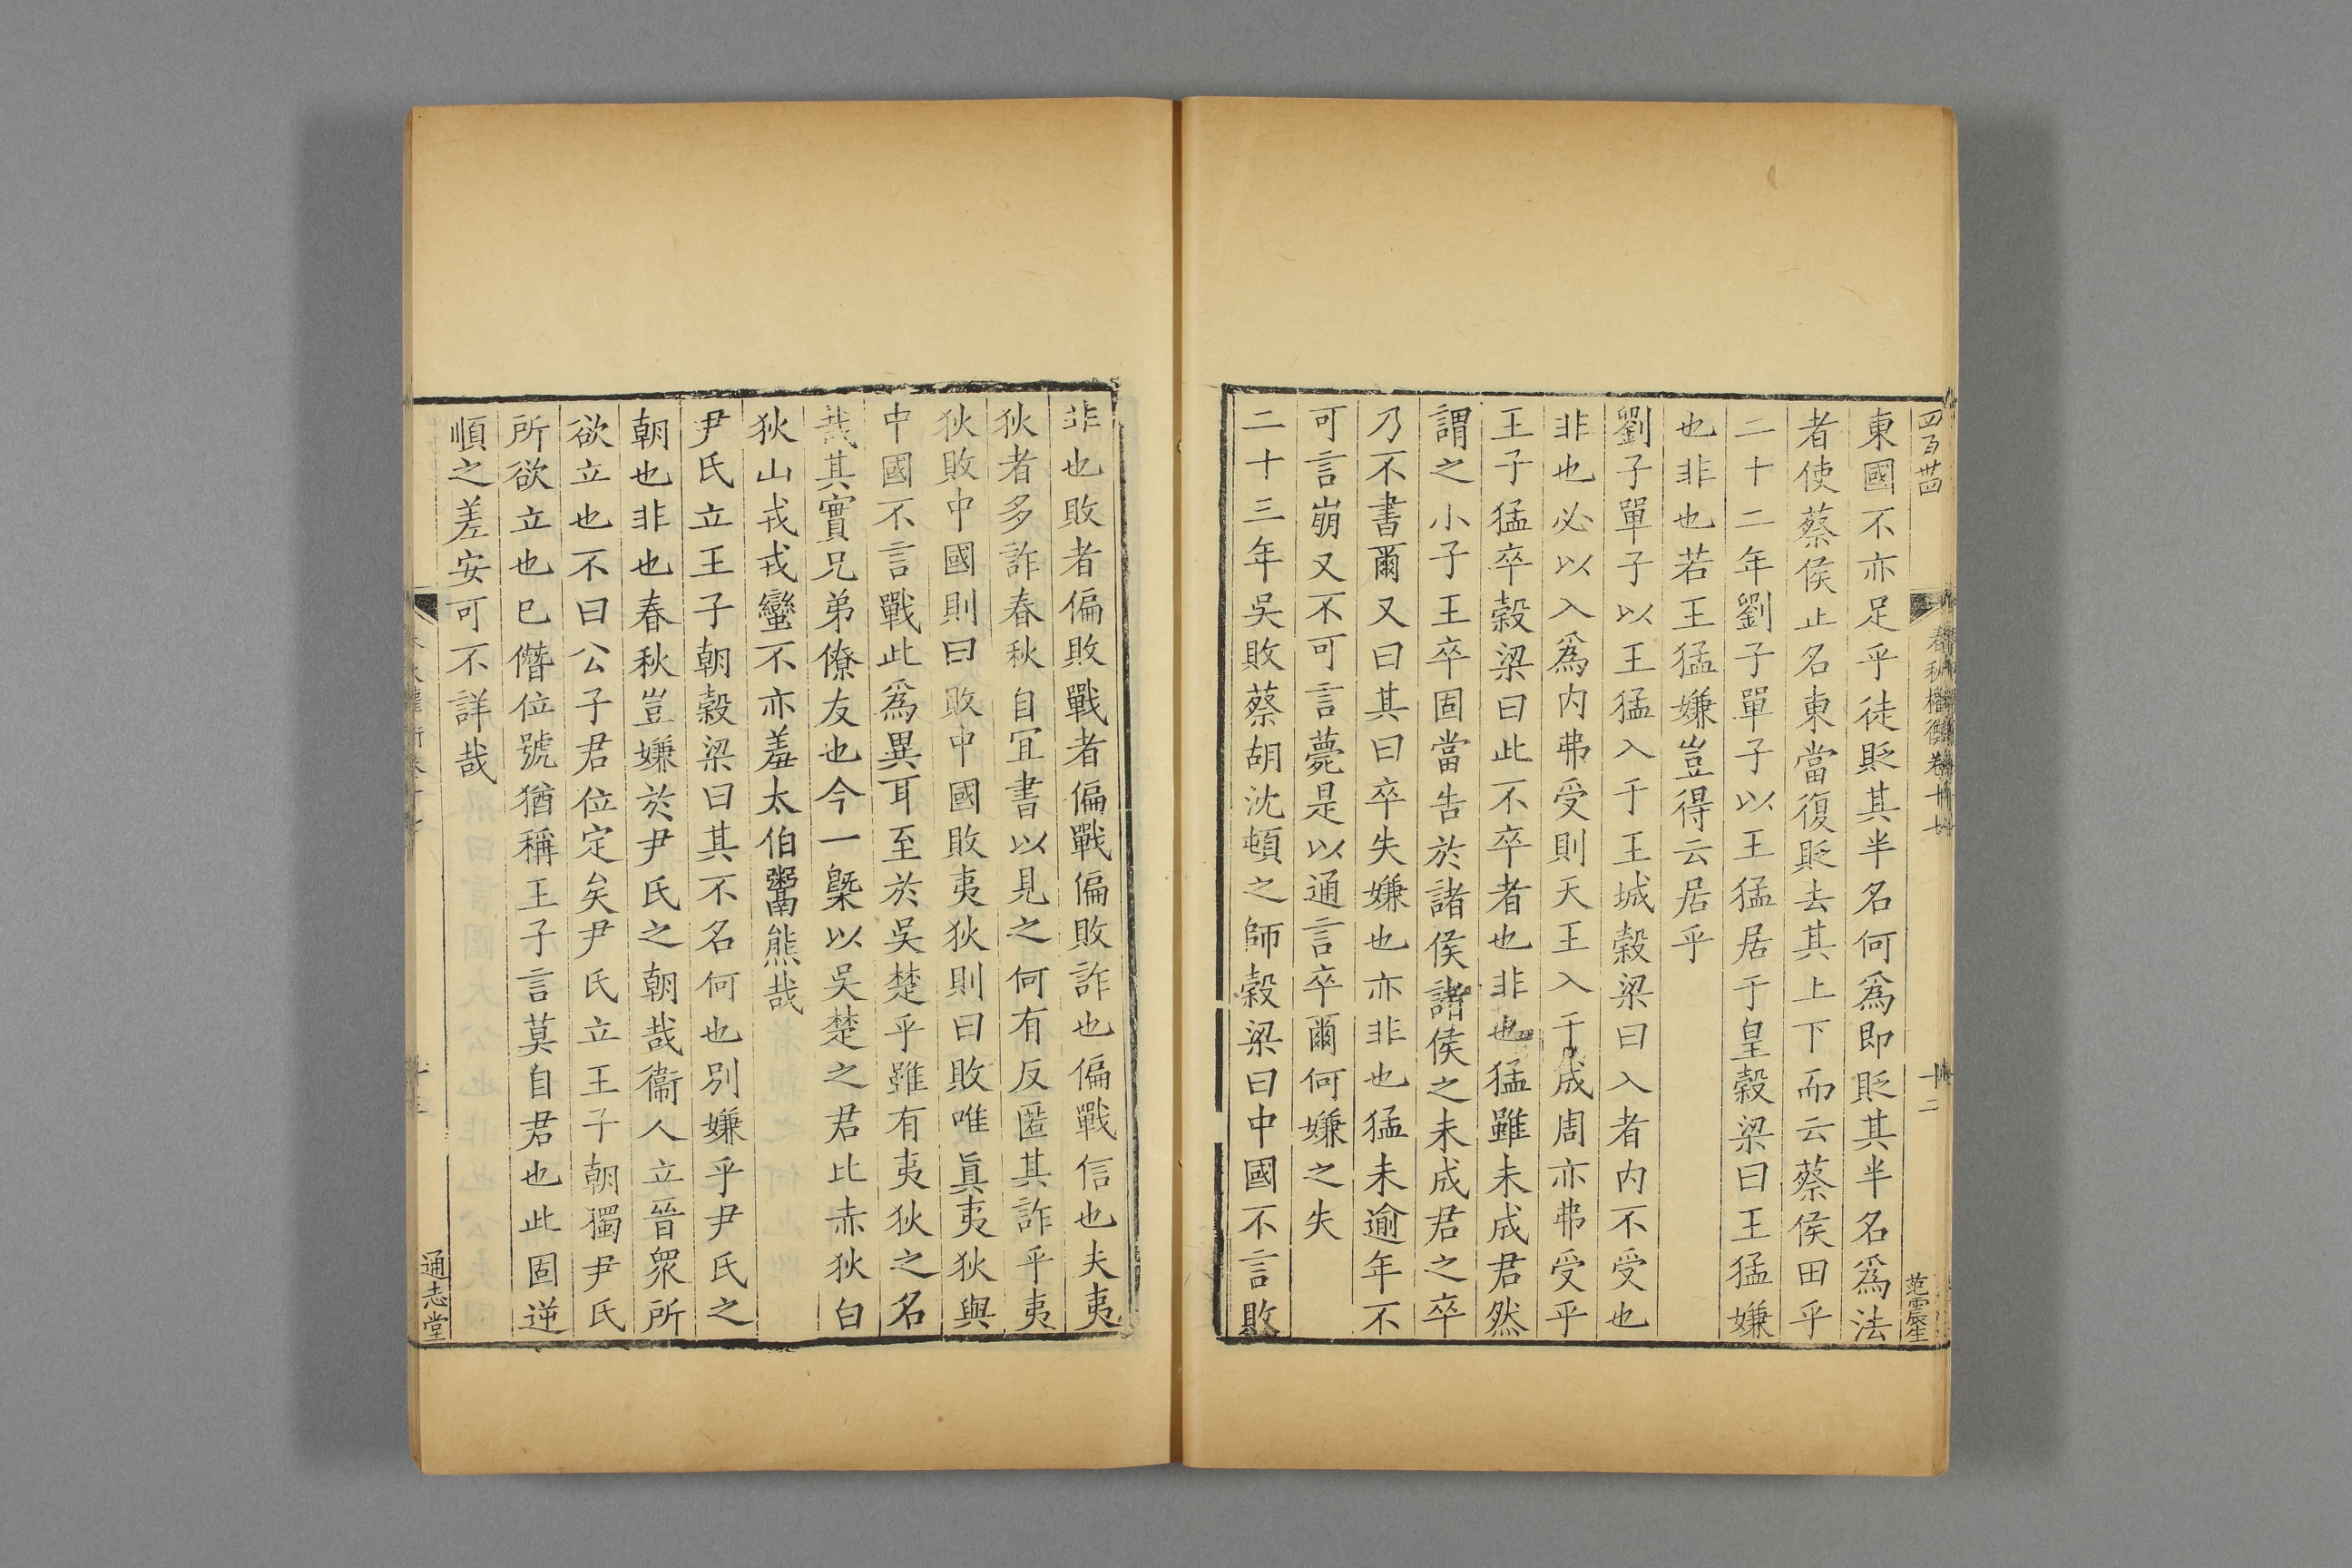 四百卅四
春秋權衡卷十七
十二
范震生
東國不亦足乎徒貶其半名何爲即貶其半名爲法
者使蔡侯止名東當復貶去其上下而云蔡侯田乎
二十二年劉子單子以王猛居于皇穀梁曰王猛嫌
也非也若王猛嫌豈得云居乎
劉子單子以王猛入于王城穀梁曰入者内不受也
非也必以入爲内弗受則天王入于成周亦弗受乎
王子猛卒穀梁曰此不卒者也非也猛雖未成君然
謂之小子王卒固當告於諸侯諸侯之未成君之卒
乃不書爾又曰其曰卒失嫌也亦非也猛未逾年不
可言崩又不可言薨是以通言卒爾何嫌之失
二十三年吳敗蔡胡沈頓之師穀梁曰中國不言敗
非也敗者偏敗戰者偏戰偏敗詐也偏戰信也夫夷
狄者多詐春秋自冝書以見之何有反匿其詐乎夷
狄敗中國則曰敗中國敗夷狄則曰敗唯眞夷狄與
中國不言戰此爲異耳至於吳楚乎雖有夷狄之名
哉其實兄弟僚友也今一槩以吳楚之君比赤狄白
狄山戎戎蠻不亦羞太伯鬻熊哉
尹氏立王子朝穀梁曰其不名何也別嫌乎尹氏之
朝也非也春秋豈嫌於尹氏之朝哉衞人立晉衆所
欲立也不曰公子君位定矣尹氏立王子朝獨尹氏
所欲立也已僭位號猶稱王子言莫自君也此固逆
順之差安可不詳哉
通志堂